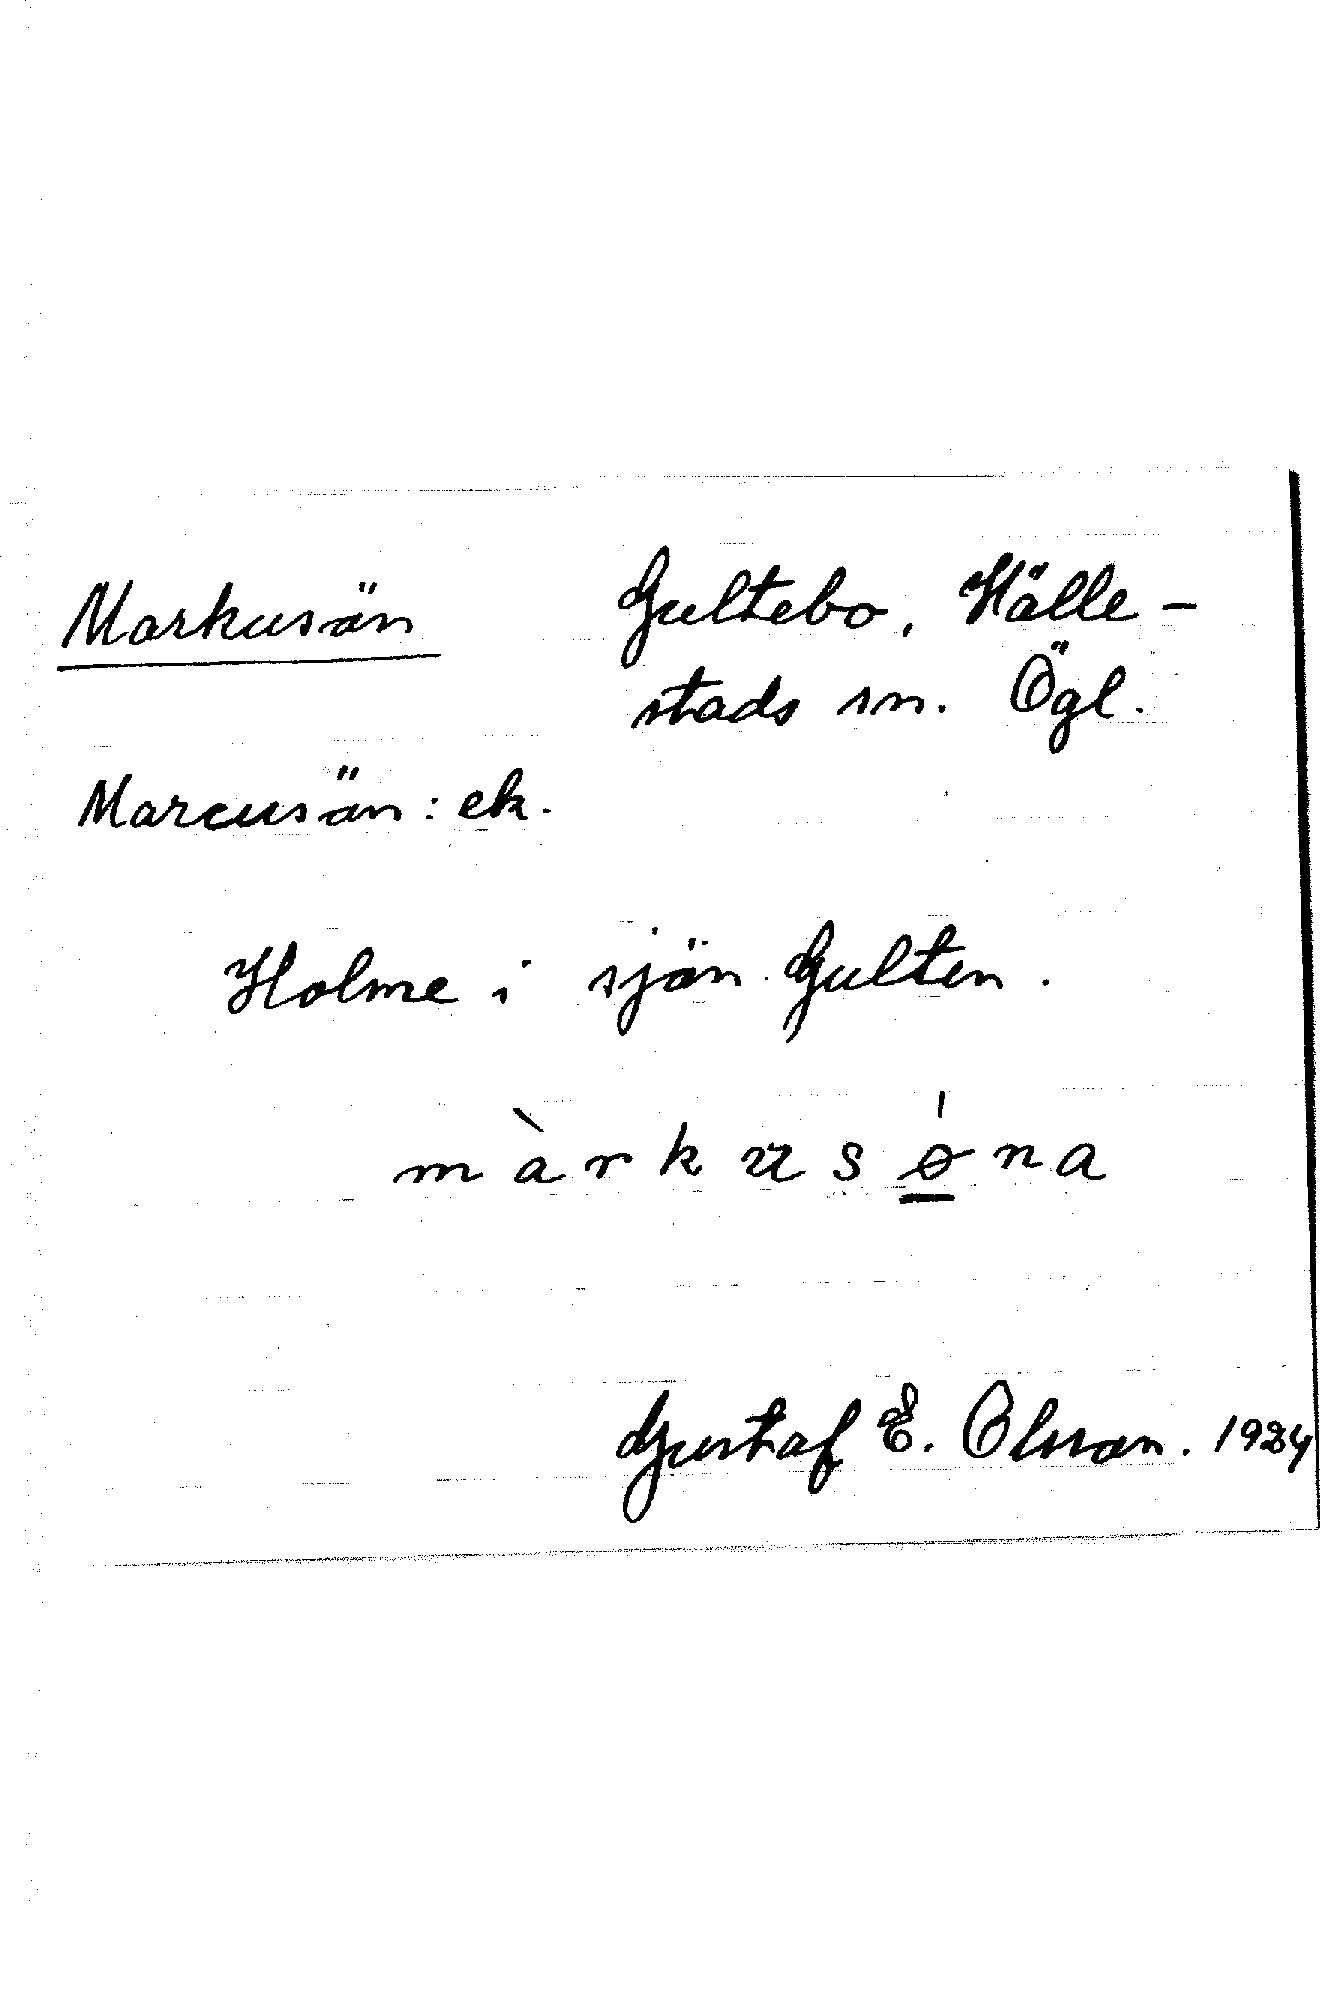 Markusön
Gultebo, Hälle-
stads sn. Ögl.
Marcusön: ek.
Holme i sjön Gulten.
màrkusøna
Gustaf E. Olsson. 1924